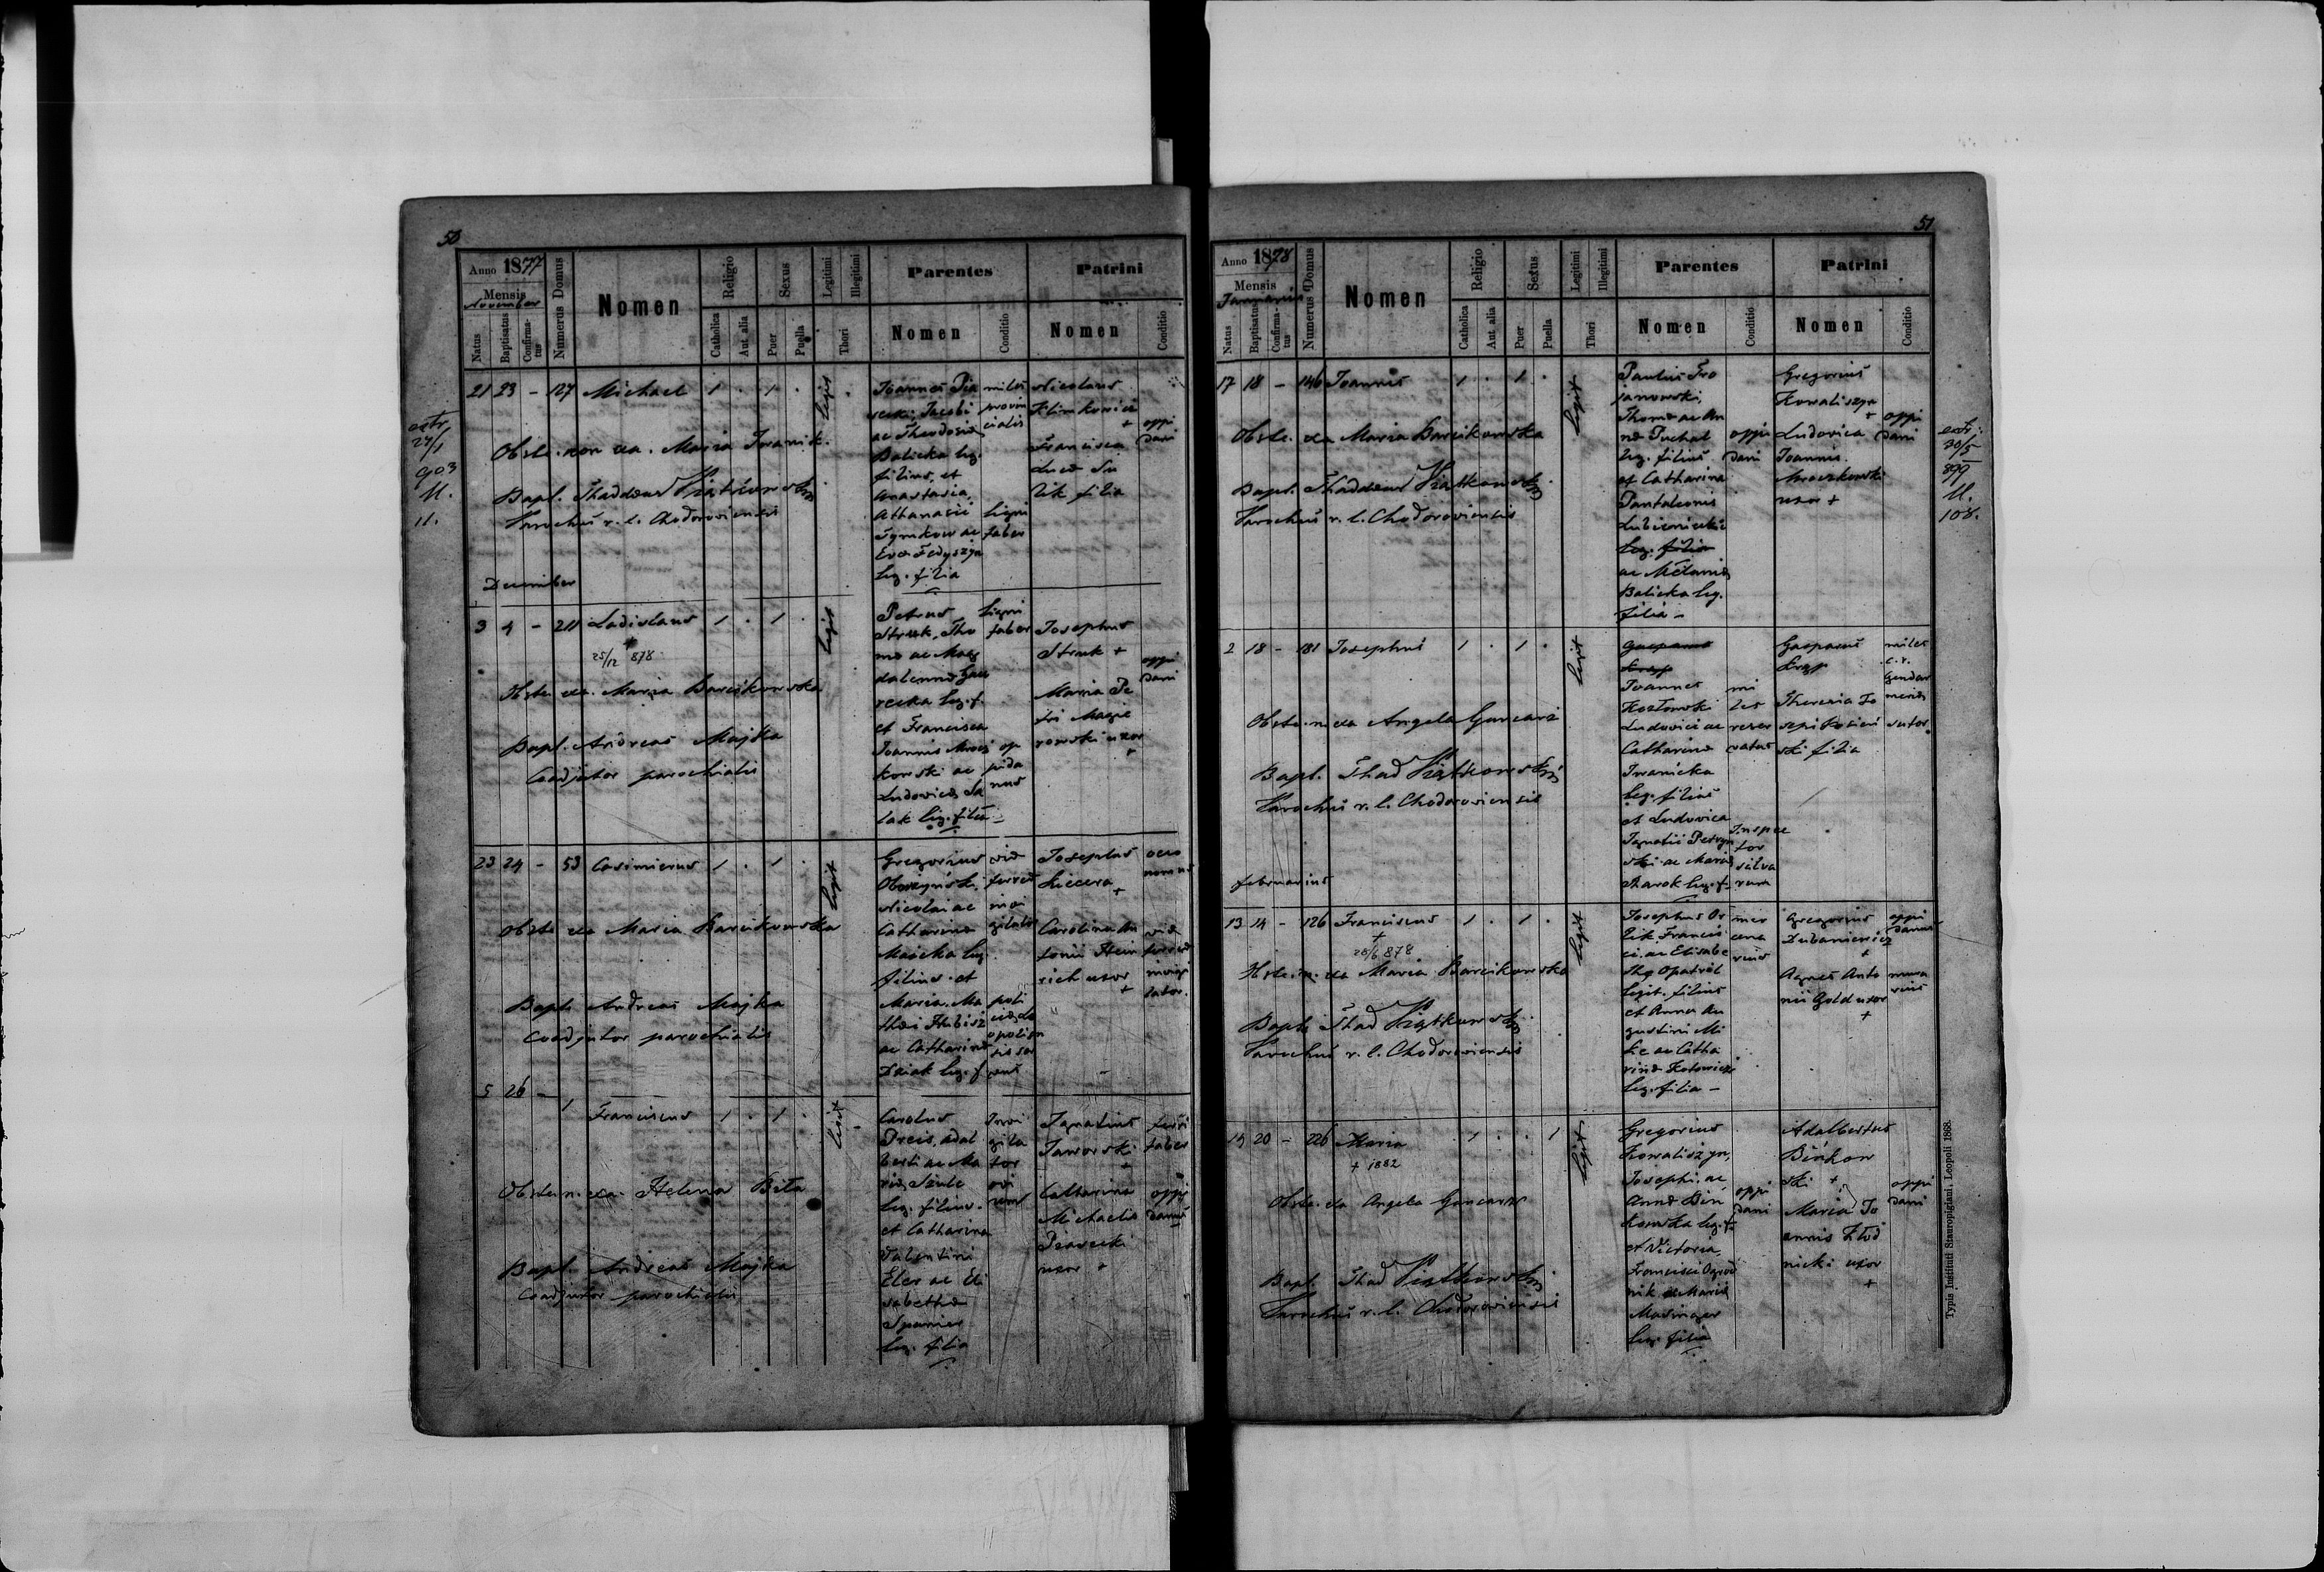 50
Anno 1877
Mensis
November
Natus
Baptisatus
Confirma-
tus
Numerus Domus
Nomen
Religio
Catholica
Aut. alia
Sexus
Puer
Puella
Legitimi
Illegitimi
Thori
Parentes
Nomen
Conditio
Patrini
Nomen
Conditio
21 23 - 127 Michael 1 . 1 .
Legit
Joannes
Jacobi
ac Theodosia
Balicka leg.
filius, et
Anastasia,
Athanasii
Tymkow ac
Eva Fedyszyn
leg. filia
miles
provin
cialis
ligni
faber
Nicolaus
Klimkowicz
+
Francisca
filia
oppi
dani
extr.
27/1
903
11.
Obste. non exa. Maria Iwanick.
Bapt. Thaddeus Piątkowski
Parochus r. l. Chodoroviensis
December
3 4 - 211 Ladislaus 1 . 1 .
+
25/12 878
Legit
Petrus
Struk, Tho
ma ac Mag
dalenna
recka leg. f.
et Francisca
Joannis Mrocz
kowski ac
Ludovica Sa
lak leg. filia
ligni
faber
op
pida
nus
Josephus
Struk +
Maria Pe
tri Magie
rowski uxor
+
oppi
dani
Obste. exa. Maria Barcikowska
Bapt. Andreas Majka
Coadjutor parochialis
23 24 - 53 Casimirus 1 . 1 .
Legit
Gregorius
Nicolai ac
Catharina
leg.
filius et
Maria Ma
thei
ac Catharina
Dziak leg. f.
viae
ferreae
Josephus
+
Carolina An
tonii Hein
rich uxor
+
oeco
nomus
viae
ferreae
invigi
lator.
Obste. exa Maria Barcikowska
Bapt. Andreas Majka
Coadjutor parochialis
5 26 - 1 Franciscus 1 . 1 .
Legit
Carolus
Preis, Adal
berti ac Ma
ria Szulc
leg. filius
et Catharina
Valentini
ac Eli
sabetha
Spanier
leg. filia
Invi
gila
tor
Ignatius
Jaworski
+
Catharina
Michaelis
Piarecki
uxor +
ferri
faber
oppi
danus
Obste. n. exa. Helena Biła
Bapt. Andreas Majka
Coadjutor parochialis
51
Anno 1878
Mensis
Januarius
Natus
Baptisatus
Confirma-
tus
Numerus Domus
Nomen
Religio
Catholica
Aut. alia
Sexus
Puer
Puella
Legitimi
Illegitimi
Thori
Parentes
Nomen
Conditio
Patrini
Nomen
Conditio
17 18 - 146 Joannes 1 . 1 .
Legit
Paulus Tro
janowski,
Thoma ac An
na Puchal
leg. filius
et Catharina
Pantaleonis
Lubieniecki
leg. filia
ac Melania
Balicka leg.
filia -
oppi
dani
Gregorius
Kowaliszyn
+
Ludovica
Joannis
Mroczkowski
uxor +
oppi
dani
extr.
30/5
899
11.
108.
Obste. exa Maria Barcikowska
Bapt. Thaddeus Piątkowski
Parochus r. l. Chodoroviensis
2 18 - 181 Josephus 1 . 1 .
Legit
Gasparus
Joannes
Kozłowski
Ludovici ac
Catharina
Iwanicka
leg. filius
et Ludovica
Ignatii
ski ac Maria
leg. f.
mi
les
reser
vatus
Inspec
tor
silva
rum
Gasparus
Theresia Jo
sephi
ski filia
miles
c. r.
Gendar
meriae
sutor
Obste. n. exa Angela Gancarz
Bapt. Thad Piątkowski
Parochus r. l. Chodoroviensis
Februarius
13 14 - 126 Franciscus 1 . 1 .
+
28/6 878
Legit
Josephus Or
lik Francis
ci ac Elisabe
tha
legit. filius
et Anna Au
gustini
ac Catha
rina Kotowicz
leg. filia -
mer
cena
rius
Gregorius
Dubaniewicz
+
Agnes Anto
nii Gold uxor
+
oppi
danus
mura
rius
Obste. n. exa Maria Barcikowska
Bapt. Thad Piątkowski
Parochus r. l. Chodoroviensis
19 20 - 226 Maria 1 . . 1
+ 1882
Legit
Gregorius
Kowaliszyn,
Josephi ac
Anna Bin
kowska leg. f.
et Victoria,
Francisci Ogrod
nik ac Maria
Masinger
leg. filia
oppi
dani
Adalbertus
Binkow
ski +
Maria Jo
annis
nicki uxor
+
oppi
dani
Obste. exa Angela Gancarz
Bapt. Thad Piątkowski
Parochus r. l. Chodoroviensis
Typis Instituti Stauropigiani. Leopoli 1868.